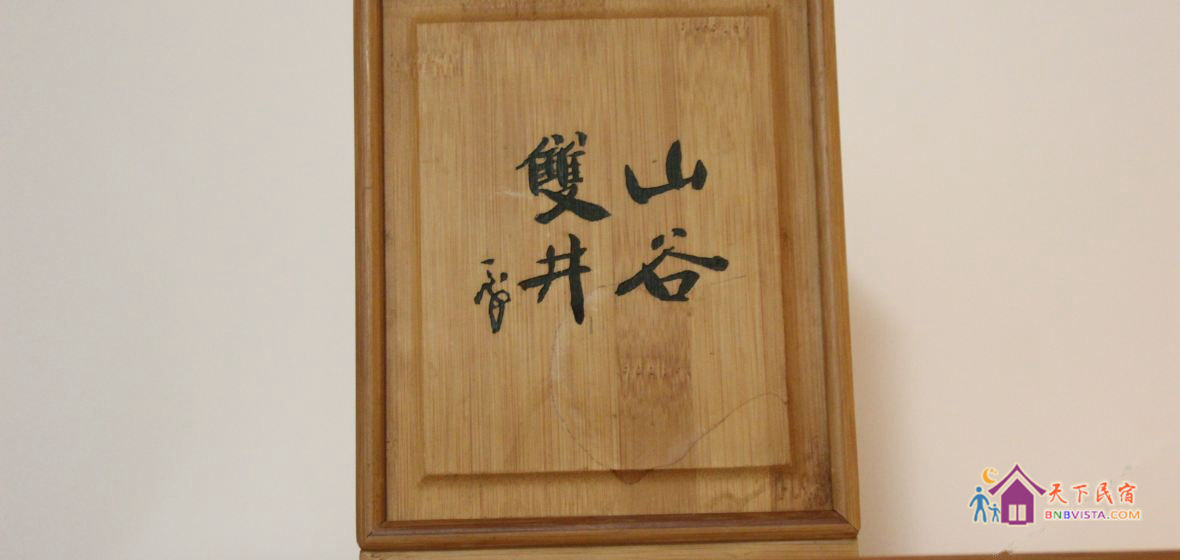 山谷
雙井
天下民宿
BNBVISTA.COM